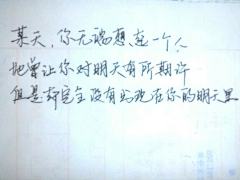 某天，你无端想起一个人
他曾让你对明天有所期许
但是却完全没有出现在你的明天里